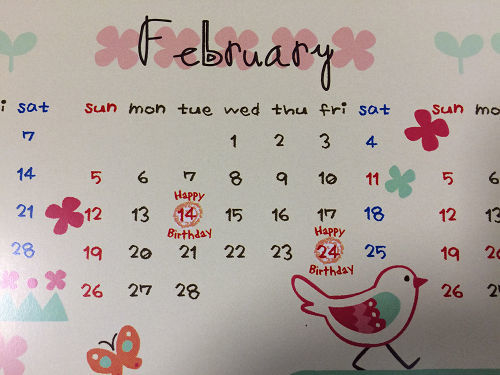 February
i sat sun mon tue wed thu fri sat sun mo
7 1 2 3 4
14 5 6 7 8 9 10 11 5 6
Happy
21 12 13 14 15 16 17 18 12 13
Birthday Happy
28 19 20 21 22 23 24 25 19 20
Birthday
26 27 28 26 27